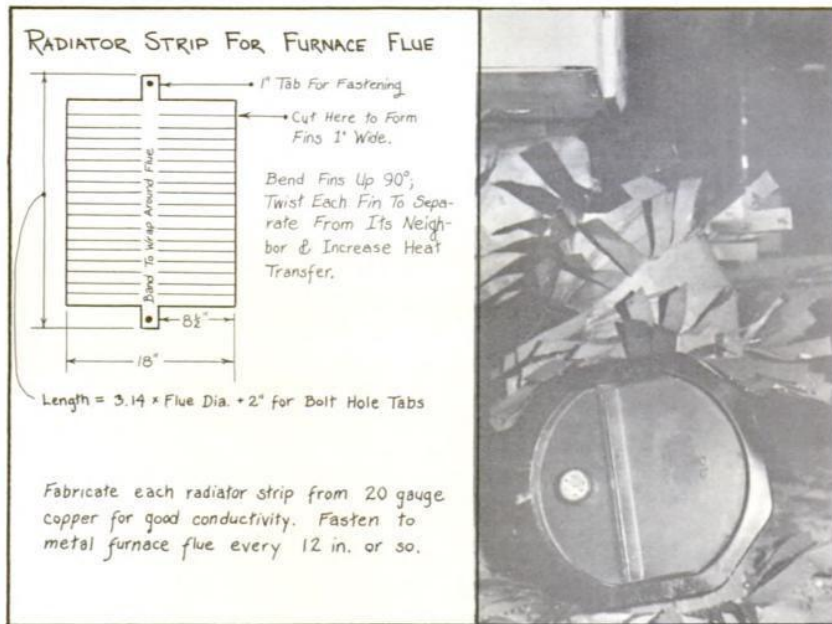 RADIATOR STRIP FOR FURNACE FLUE
1" Tab For Fastening
Cut Here to Form
Fins 1" Wide.
Band To Wrap Around Flue
Bend Fins Up 90°;
Twist Each Fin To Sepa-
rate From Its Neigh-
bor & Increase Heat
Transfer.
8½"
18"
Length = 3.14 × Flue Dia. + 2" for Bolt Hole Tabs
Fabricate each radiator strip from 20 gauge
copper for good conductivity. Fasten to
metal furnace flue every 12 in. or so.